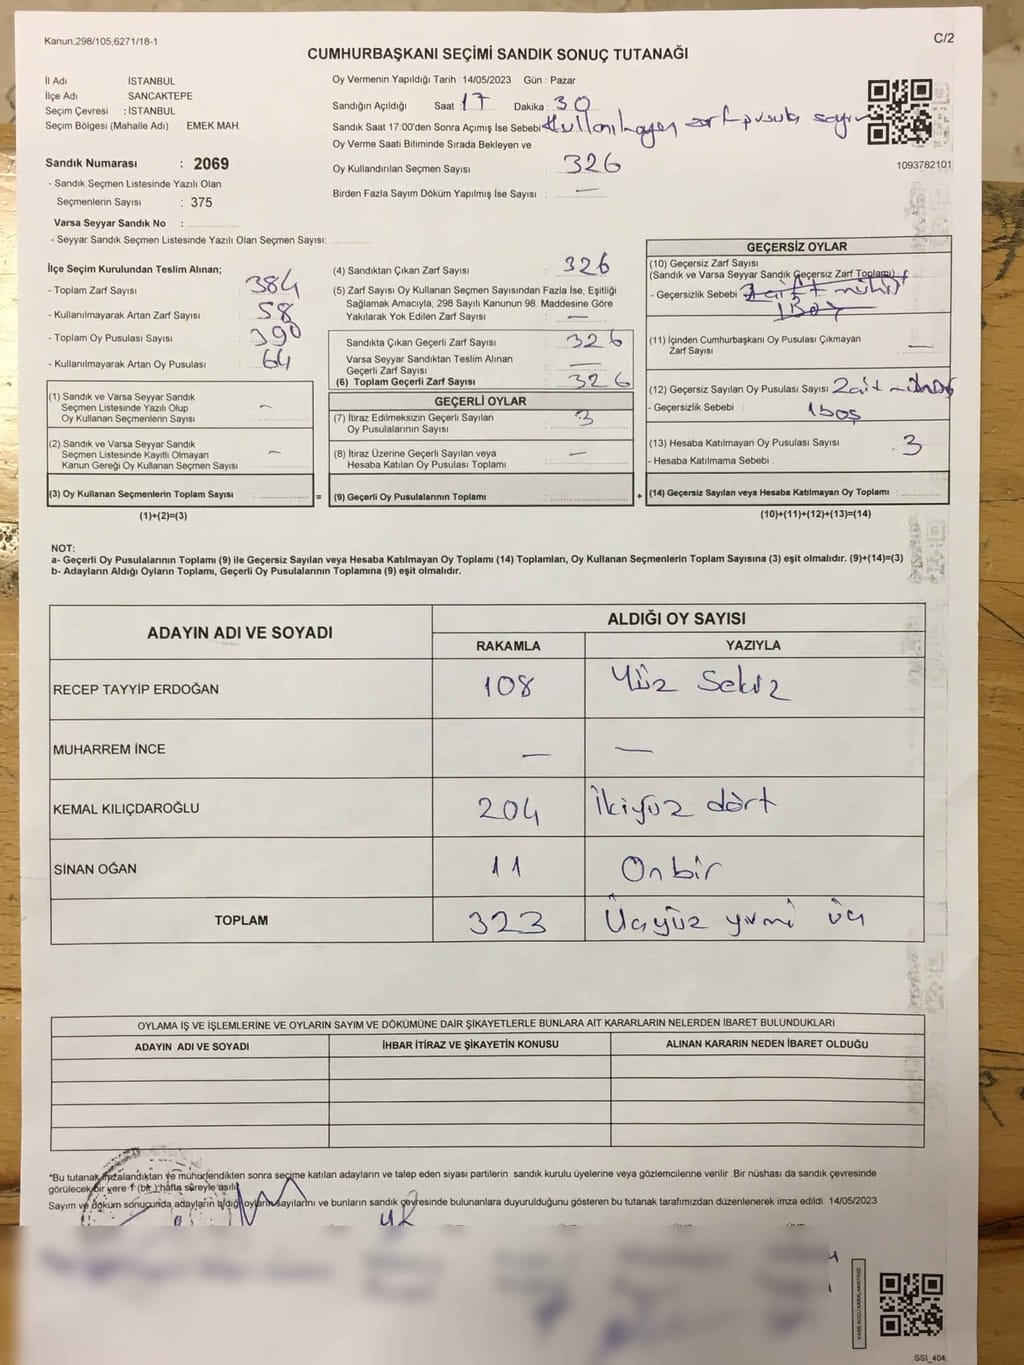 Kanun,298/105,6271/18-1
C/2
CUMHURBAŞKANI SEÇİMİ SANDIK SONUÇ TUTANAĞI
İl Adı : İSTANBUL
İlçe Adı : SANCAKTEPE
Seçim Çevresi : İSTANBUL
Seçim Bölgesi (Mahalle Adı) : EMEK MAH.
Oy Vermenin Yapıldığı Tarih : 14/05/2023 Gün : Pazar
Sandığın Açıldığı Saat : 17 Dakika : 30
Sandık Saat 17:00'den Sonra Açımış İse Sebebi Kullanılmayan zarf pusula sayım
Oy Verme Saati Bitiminde Sırada Bekleyen ve
Oy Kullandırılan Seçmen Sayısı : 326
Birden Fazla Sayım Döküm Yapılmış İse Sayısı : —
1093782101
Sandık Numarası : 2069
- Sandık Seçmen Listesinde Yazılı Olan
Seçmenlerin Sayısı : 375
Varsa Seyyar Sandık No :
- Seyyar Sandık Seçmen Listesinde Yazılı Olan Seçmen Sayısı:
İlçe Seçim Kurulundan Teslim Alınan;
- Toplam Zarf Sayısı : 384
- Kullanılmayarak Artan Zarf Sayısı : 58
- Toplam Oy Pusulası Sayısı : 390
- Kullanılmayarak Artan Oy Pusulası : 64
(1) Sandık ve Varsa Seyyar Sandık
Seçmen Listesinde Yazılı Olup
Oy Kullanan Seçmenlerin Sayısı : —
(2) Sandık ve Varsa Seyyar Sandık
Seçmen Listesinde Kayıtlı Olmayan
Kanun Gereği Oy Kullanan Seçmen Sayısı : —
(3) Oy Kullanan Seçmenlerin Toplam Sayısı :
(1)+(2)=(3)
=
(4) Sandıktan Çıkan Zarf Sayısı : 326
(5) Zarf Sayısı Oy Kullanan Seçmen Sayısından Fazla İse, Eşitliği
Sağlamak Amacıyla, 298 Sayılı Kanunun 98. Maddesine Göre
Yakılarak Yok Edilen Zarf Sayısı : —
Sandıkta Çıkan Geçerli Zarf Sayısı : 326
Varsa Seyyar Sandıktan Teslim Alınan
Geçerli Zarf Sayısı : —
(6) Toplam Geçerli Zarf Sayısı : 326
GEÇERLİ OYLAR
(7) İtiraz Edilmeksizin Geçerli Sayılan
Oy Pusulalarının Sayısı : 3
(8) İtiraz Üzerine Geçerli Sayılan veya
Hesaba Katılan Oy Pusulası Toplamı : —
(9) Geçerli Oy Pusulalarının Toplamı :
+
GEÇERSİZ OYLAR
(10) Geçersiz Zarf Sayısı
(Sandık ve Varsa Seyyar Sandık Geçersiz Zarf Toplamı) :
- Geçersizlik Sebebi
(11) İçinden Cumhurbaşkanı Oy Pusulası Çıkmayan
Zarf Sayısı : —
(12) Geçersiz Sayılan Oy Pusulası Sayısı 2 çift mühür
- Geçersizlik Sebebi : 1 boş
(13) Hesaba Katılmayan Oy Pusulası Sayısı : 3
- Hesaba Katılmama Sebebi :
(14) Geçersiz Sayılan veya Hesaba Katılmayan Oy Toplamı :
(10)+(11)+(12)+(13)=(14)
NOT:
a- Geçerli Oy Pusulalarının Toplamı (9) ile Geçersiz Sayılan veya Hesaba Katılmayan Oy Toplamı (14) Toplamları, Oy Kullanan Seçmenlerin Toplam Sayısına (3) eşit olmalıdır. (9)+(14)=(3)
b- Adayların Aldığı Oyların Toplamı, Geçerli Oy Pusulalarının Toplamına (9) eşit olmalıdır.
ADAYIN ADI VE SOYADI
ALDIĞI OY SAYISI
RAKAMLA YAZIYLA
RECEP TAYYİP ERDOĞAN 108 Yüz Sekiz
MUHARREM İNCE — —
KEMAL KILIÇDAROĞLU 204 İkiyüz dört
SİNAN OĞAN 11 Onbir
TOPLAM 323 Üçyüz yirmi üç
OYLAMA İŞ VE İŞLEMLERİNE VE OYLARIN SAYIM VE DÖKÜMÜNE DAİR ŞİKAYETLERLE BUNLARA AİT KARARLARIN NELERDEN İBARET BULUNDUKLARI
ADAYIN ADI VE SOYADI İHBAR İTİRAZ VE ŞİKAYETİN KONUSU ALINAN KARARIN NEDEN İBARET OLDUĞU
*Bu tutanak imzalandıktan ve mühürlendikten sonra seçime katılan adayların ve talep eden siyasi partilerin sandık kurulu üyelerine veya gözlemcilerine verilir .Bir nüshası da sandık çevresinde
görülecek bir yere 1 (bir) hafta süreyle asılır.
Sayım ve döküm sonucunda adayların aldığı oyların sayılarını ve bunların sandık çevresinde bulunanlara duyurulduğunu gösteren bu tutanak tarafımızdan düzenlenerek imza edildi. 14/05/2023
SSI_404